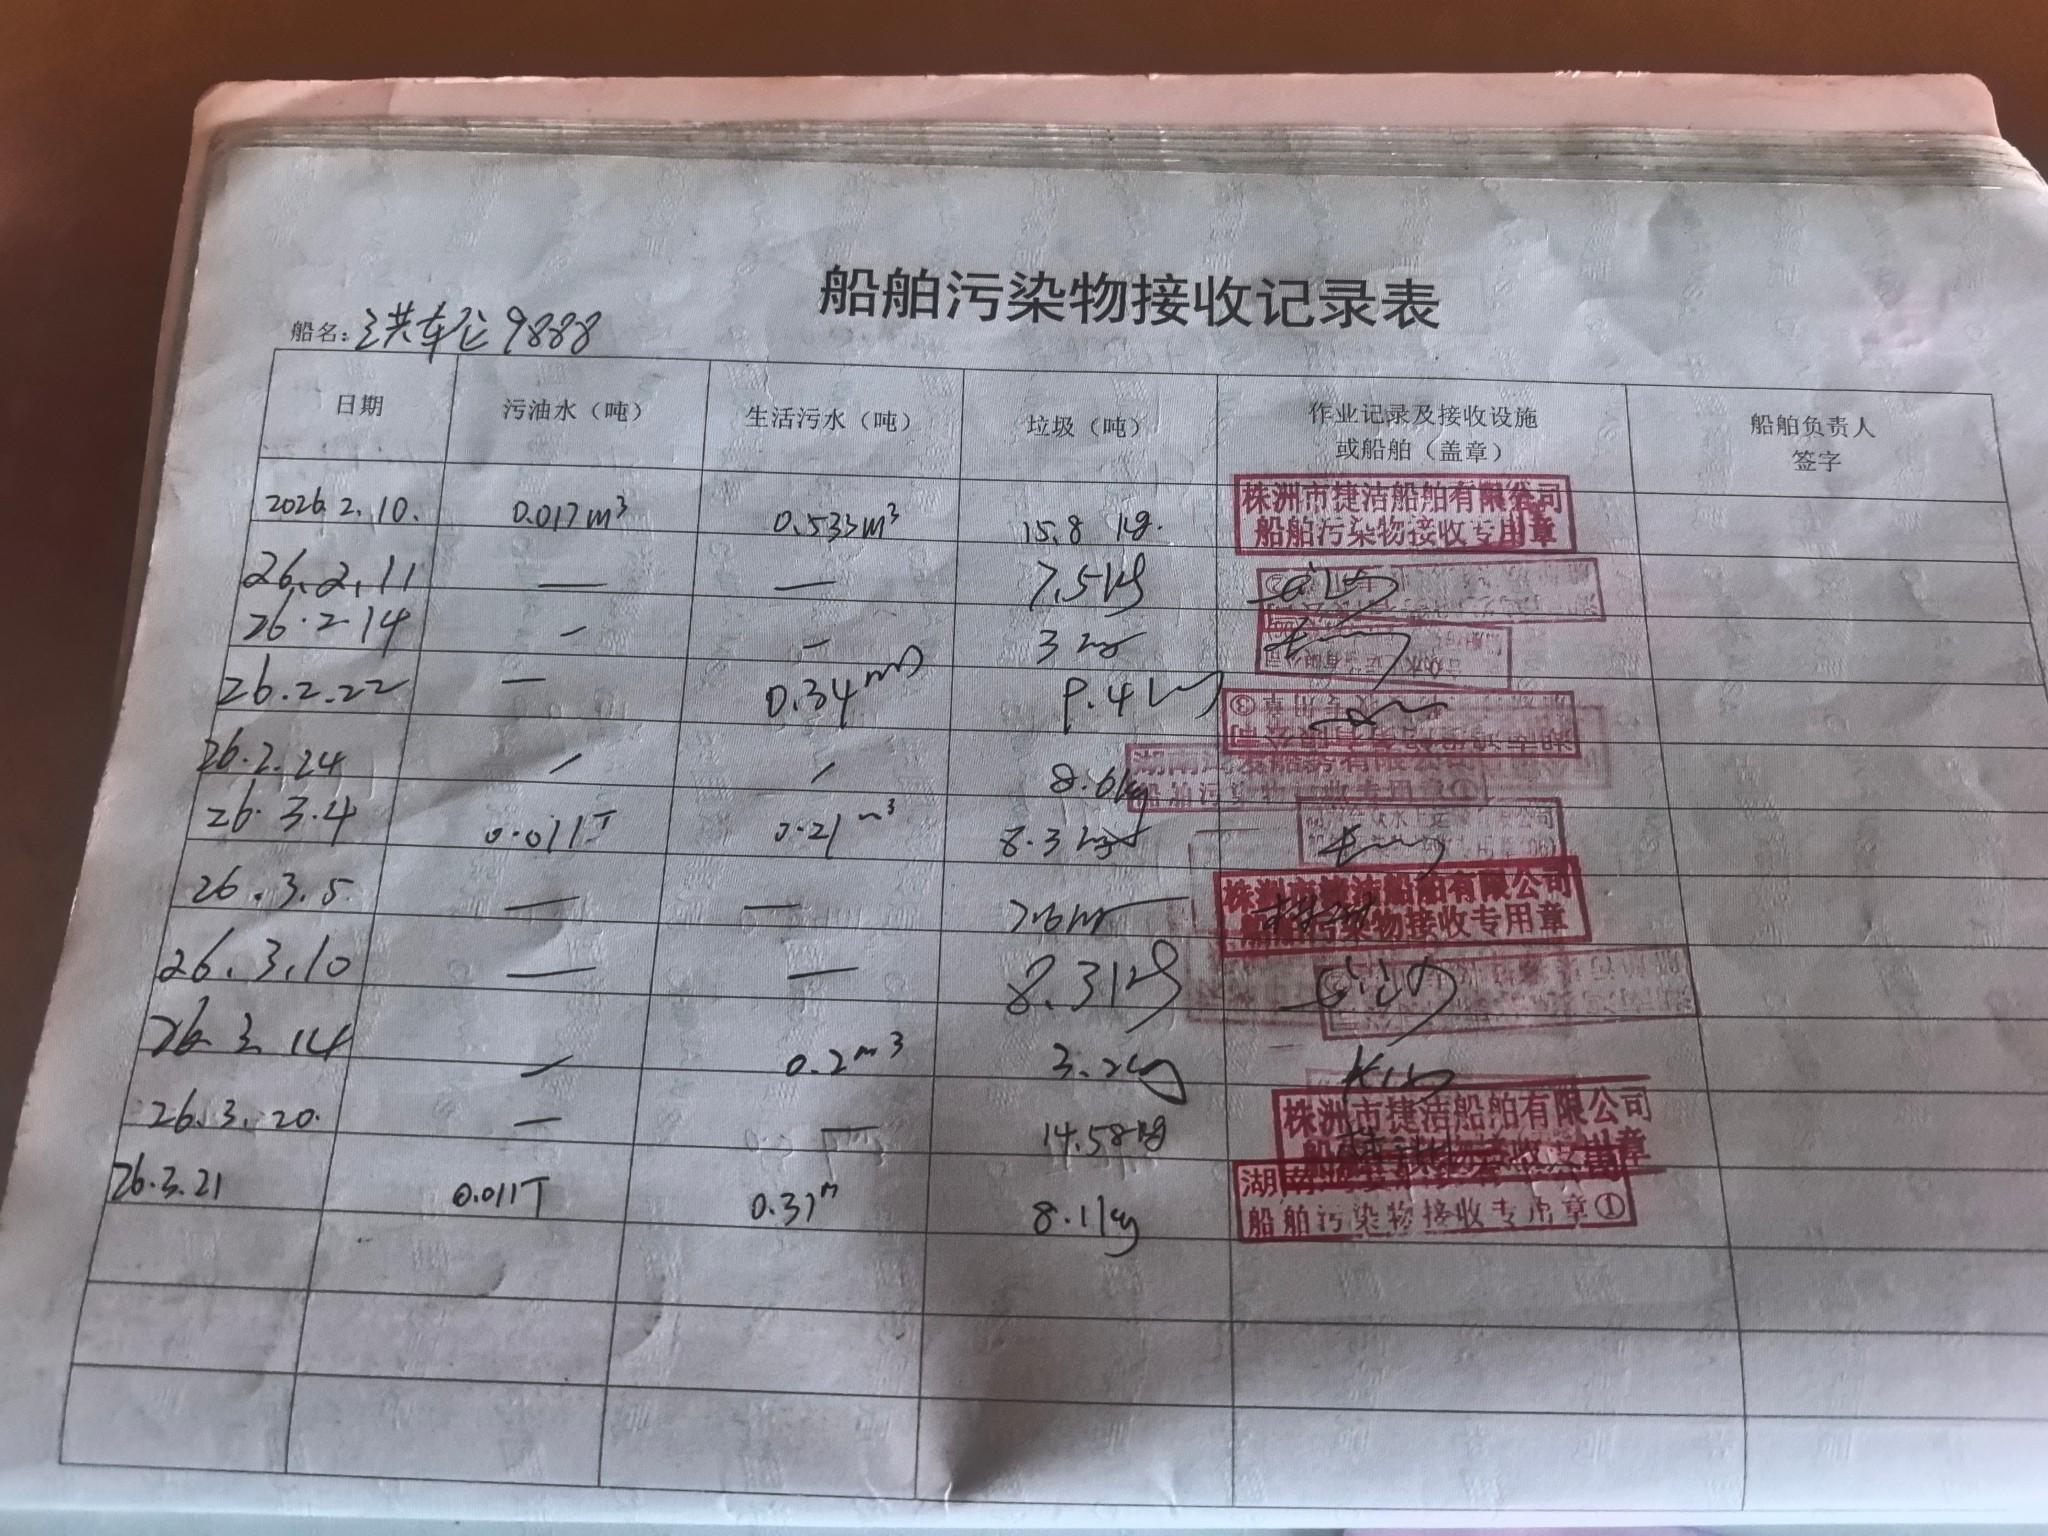 船舶污染物接收记录表
船名: 9888
日期 污油水（吨） 生活污水（吨） 垃圾（吨） 作业记录及接收设施 船舶负责人
或船舶（盖章） 签字
2026.2.10. 0.017m³ 0.533m³ 15.8 kg. 株洲市捷洁船舶有限公司
船舶污染物接收专用章
26.2.11 — — 7.5kg
26.2.14 — — 3kg
26.2.22 — 0.34m³
26.2.24 / / 8.6kg
船舶污染物接收专用章①
26.3.4 0.011T 0.21m³ 8.3kg
26.3.5 — — 7.6kg 株洲市捷洁船舶有限公司
船舶污染物接收专用章
26.3.10 — — 8.3kg
26.3.14 — 0.2m³ 3.2kg
26.3.20. — — 14.58kg 株洲市捷洁船舶有限公司
船舶污染物接收专用章
26.3.21 0.011T 0.31m 8.1kg 湖南
船舶污染物接收专用章①